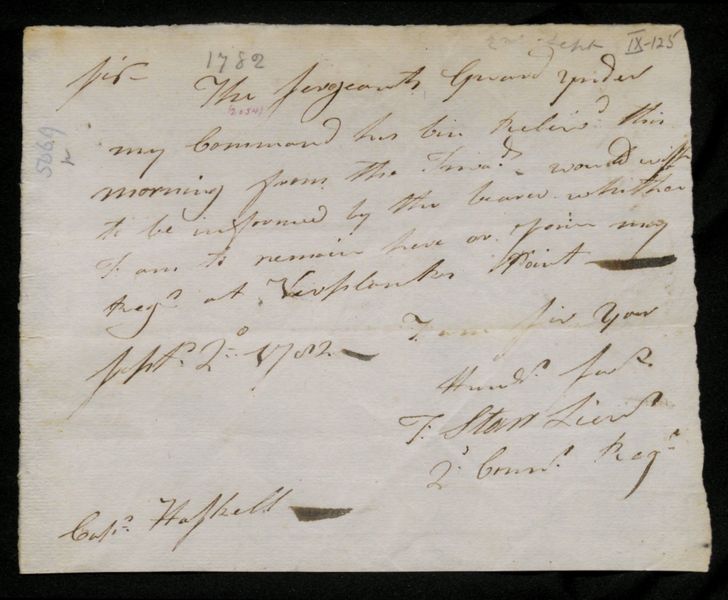 2nd Sept IX-125
1782
Sir The Sergeants Guard under
(2054)
my Command has bin Reliev.d this
morning from the - would wish
to be informed by the bearer whither
I am to remain here or Join my
Reg.t at Verplanks Point
Sept.r 2.d 1782
I am Sir Your
Humb.l Serv.t
T. Starr Lieu.t
2.d Conn.t Reg.t
Cap.t Haskell